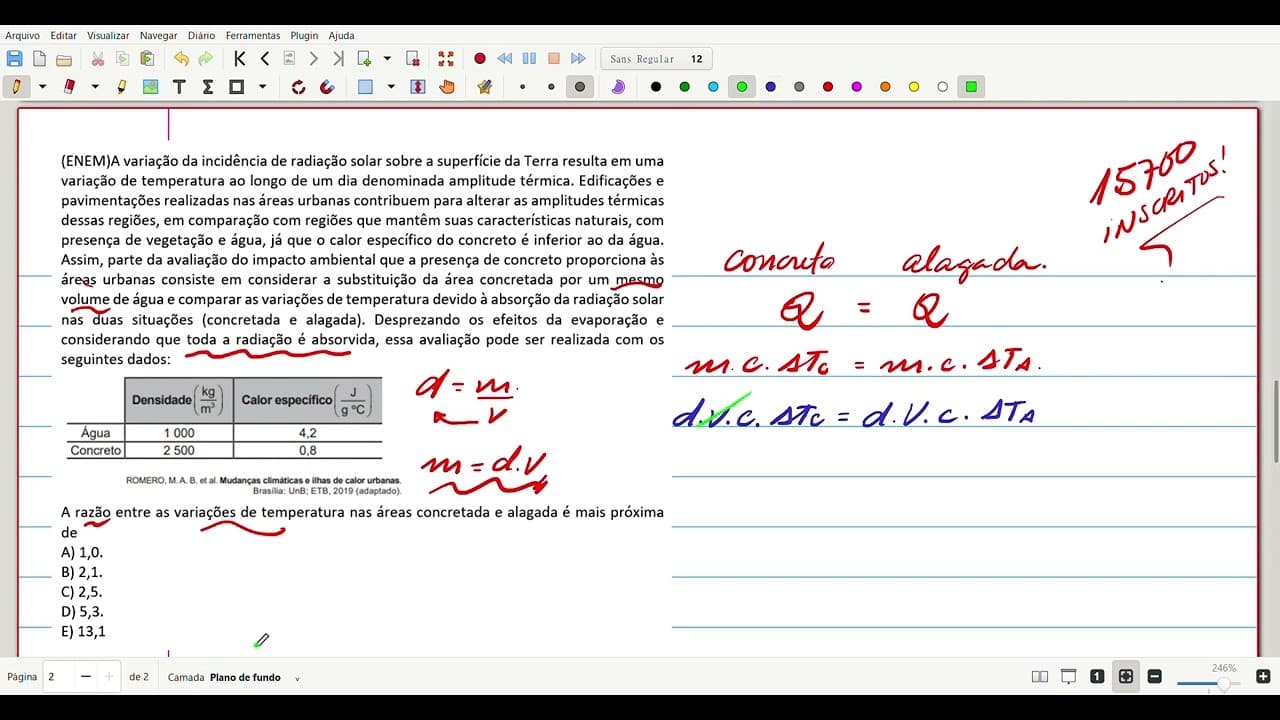 Arquivo Editar Visualizar Navegar Diário Ferramentas Plugin Ajuda
Sans Regular 12
(ENEM)A variação da incidência de radiação solar sobre a superfície da Terra resulta em uma
variação de temperatura ao longo de um dia denominada amplitude térmica. Edificações e
pavimentações realizadas nas áreas urbanas contribuem para alterar as amplitudes térmicas
dessas regiões, em comparação com regiões que mantêm suas características naturais, com
presença de vegetação e água, já que o calor específico do concreto é inferior ao da água.
Assim, parte da avaliação do impacto ambiental que a presença de concreto proporciona às
áreas urbanas consiste em considerar a substituição da área concretada por um mesmo
volume de água e comparar as variações de temperatura devido à absorção da radiação solar
nas duas situações (concretada e alagada). Desprezando os efeitos da evaporação e
considerando que toda a radiação é absorvida, essa avaliação pode ser realizada com os
seguintes dados:
Densidade (kg/m³) Calor específico (J/g °C)
Água 1 000 4,2
Concreto 2 500 0,8
ROMERO, M. A. B. et al. Mudanças climáticas e ilhas de calor urbanas.
Brasília: UnB; ETB, 2019 (adaptado).
A razão entre as variações de temperatura nas áreas concretada e alagada é mais próxima
de
A) 1,0.
B) 2,1.
C) 2,5.
D) 5,3.
E) 13,1
d = m/v
m = d.V
15700
INSCRITOS!
concreto alagada.
Q = Q
m.c.ΔTc = m.c.ΔTA.
d.V.c.ΔTc = d.V.c.ΔTA
Página 2 de 2 Camada Plano de fundo
1
246%